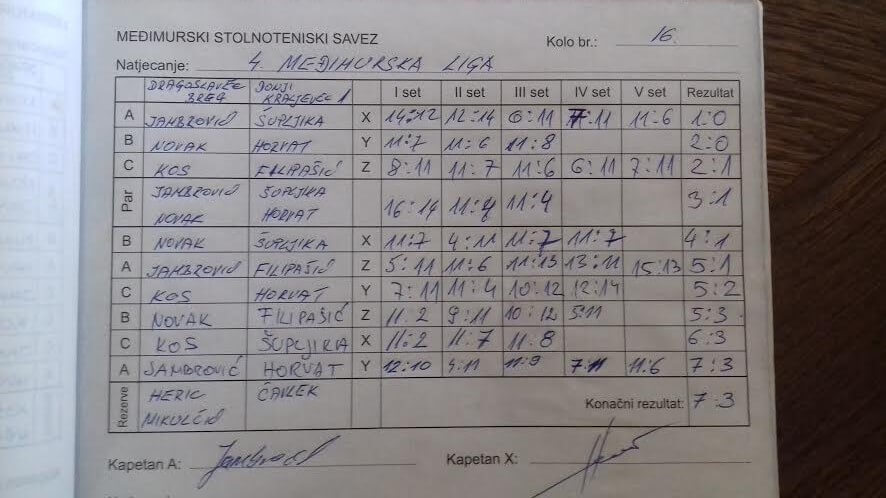 MEĐIMURSKI STOLNOTENISKI SAVEZ
Kolo br.: 16.
Natjecanje: 4. MEĐIMURSKA LIGA
DRAGOSLAVEC BREG DONJI KRALJEVEC 1 I set II set III set IV set V set Rezultat
A JAMBROVIĆ ŠUPLJIKA X 14:12 12:14 6:11 7:11 11:6 1:0
B NOVAK HORVAT Y 11:7 11:6 11:8 2:0
C KOS FILIPAŠIĆ Z 8:11 11:7 11:6 6:11 7:11 2:1
Par JAMBROVIĆ ŠUPLJIKA
NOVAK HORVAT 16:14 11:8 11:4 3:1
B NOVAK ŠUPLJIKA X 11:7 4:11 11:7 11:7 4:1
A JAMBROVIĆ FILIPAŠIĆ Z 5:11 11:6 11:13 13:11 15:13 5:1
C KOS HORVAT Y 7:11 11:4 10:12 12:14 5:2
B NOVAK FILIPAŠIĆ Z 11:2 9:11 10:12 5:11 5:3
C KOS ŠUPLJIKA X 11:2 11:7 11:8 6:3
A JAMBROVIĆ HORVAT Y 12:10 4:11 11:9 7:11 11:6 7:3
Rezerve HERIC ČAVLEK
Konačni rezultat: 7:3
Kapetan A: Kapetan X: